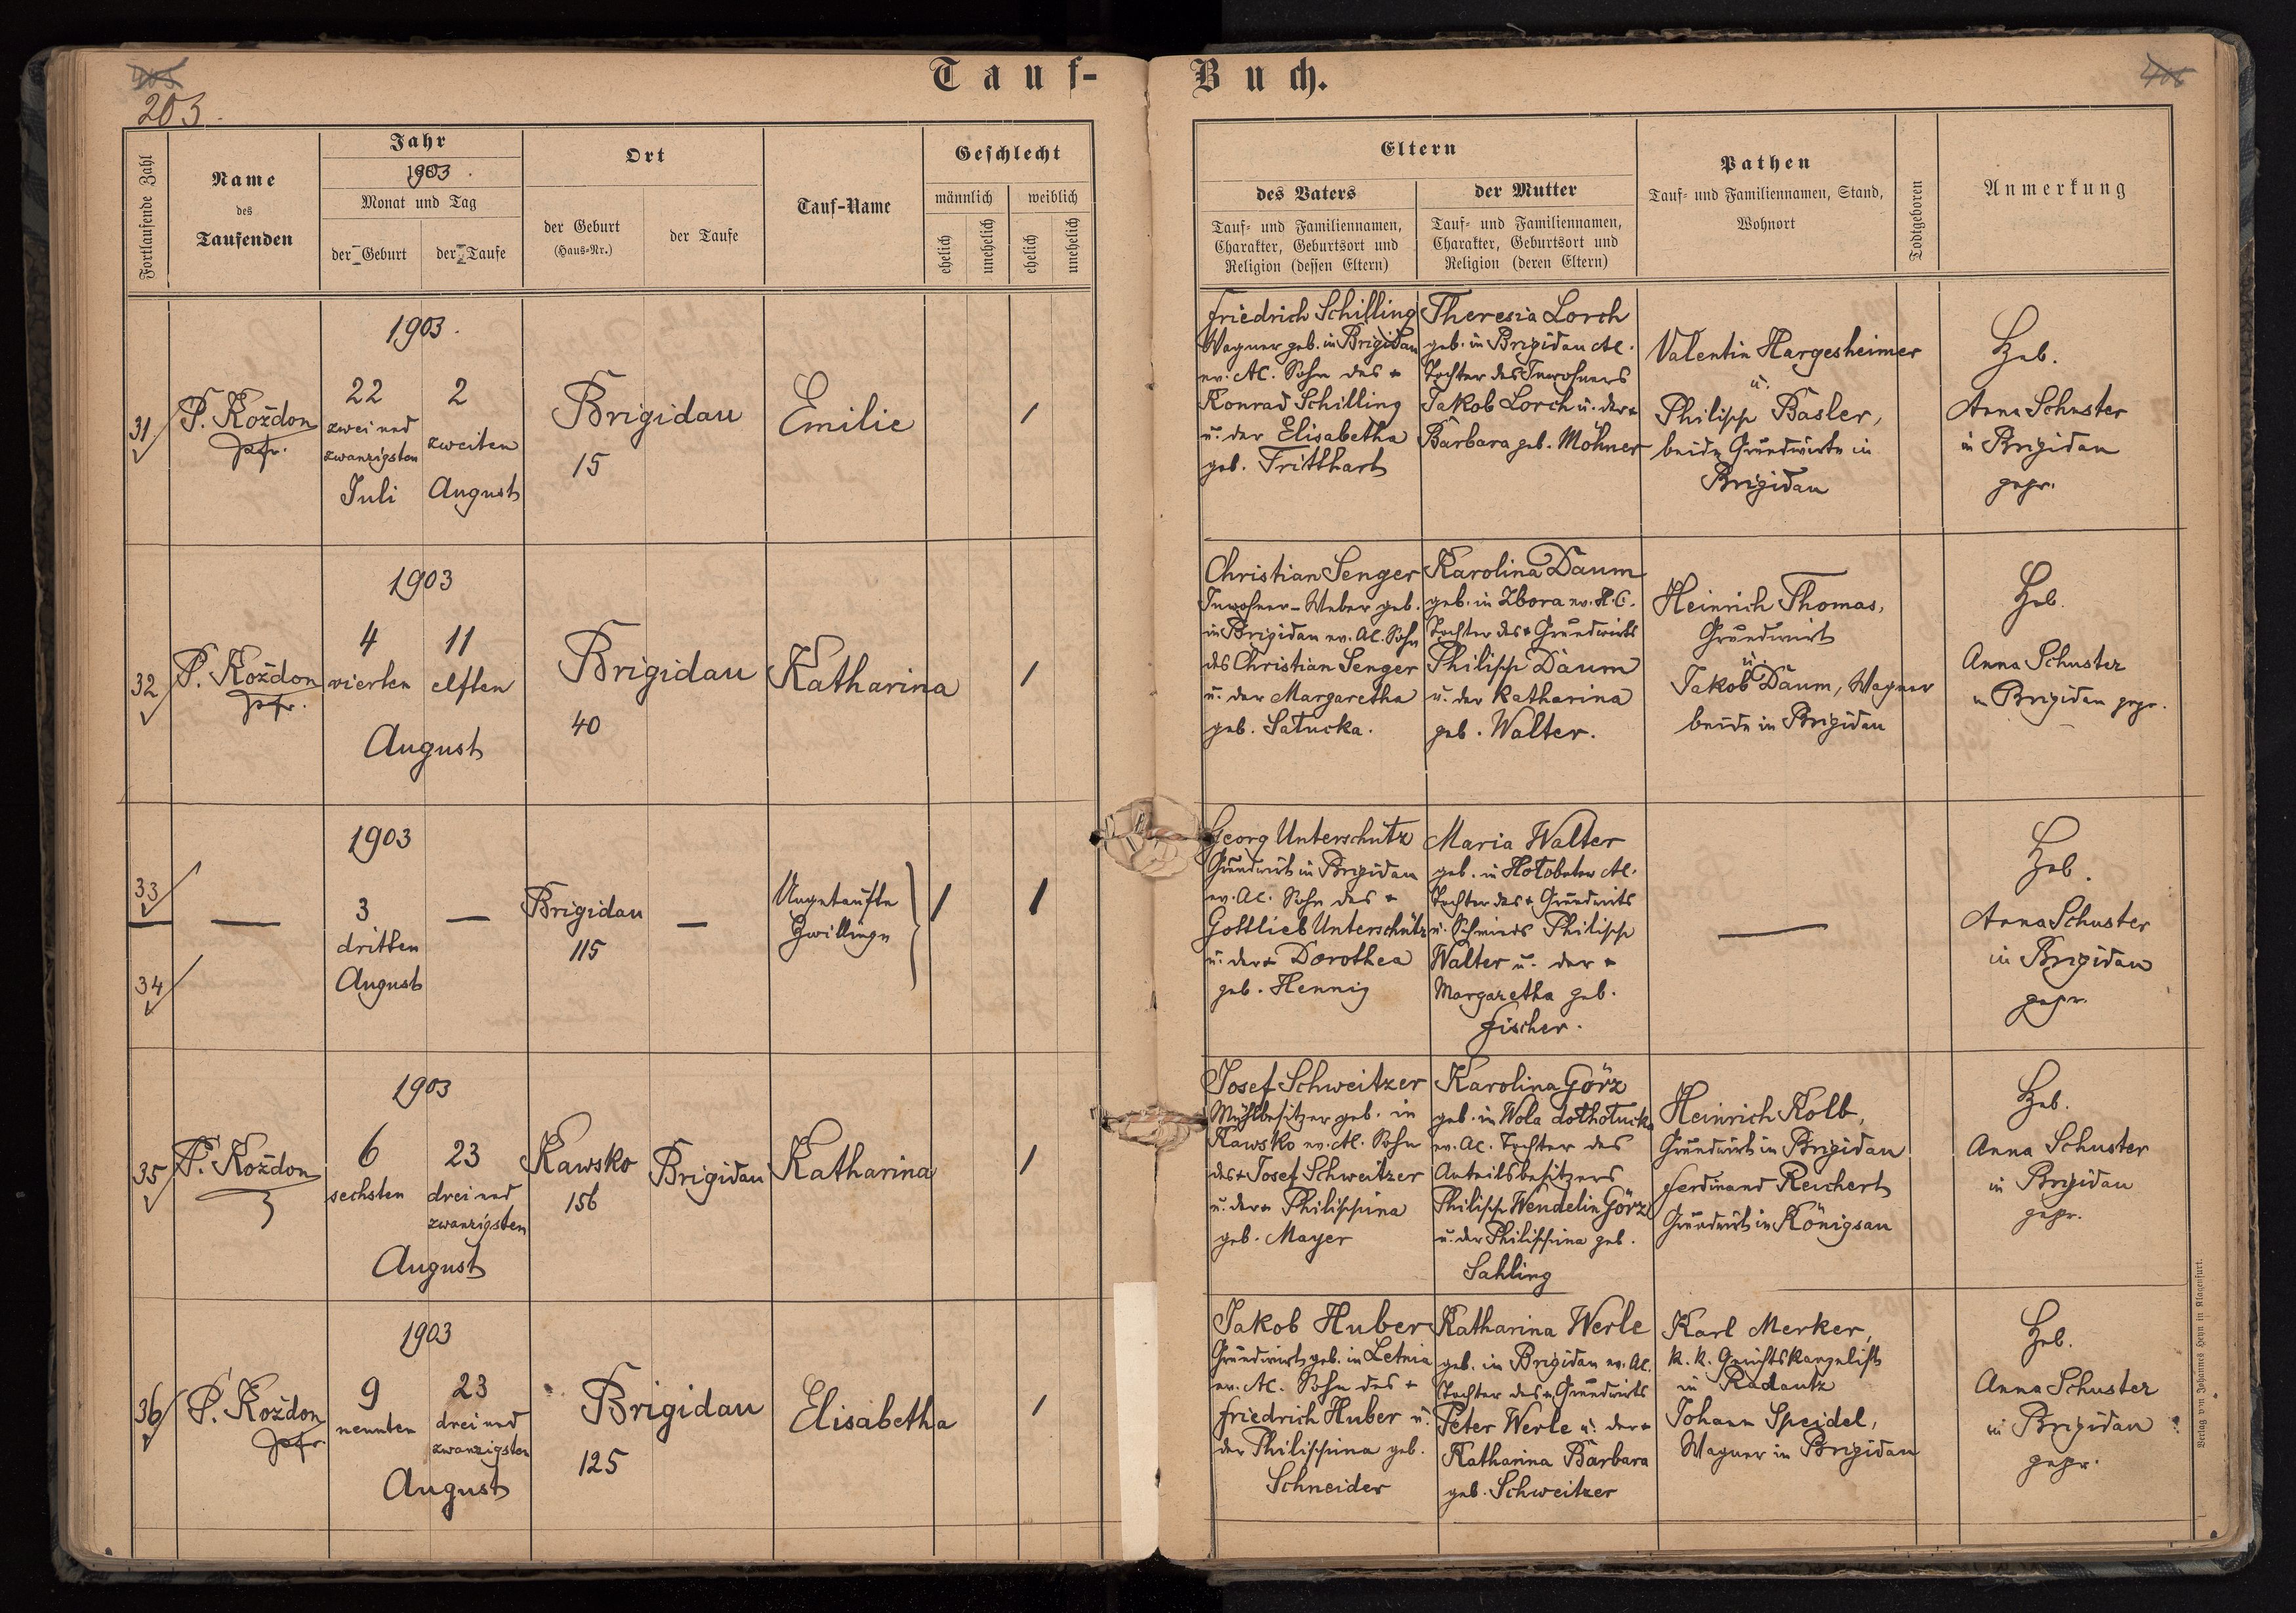 405
203.
Tauf-
Buch.
406
Fortlaufende Zahl
Name
des
Taufenden
Jahr
1903.
Monat und Tag
der Geburt
der Taufe
Ort
der Geburt
(Haus-Nr.)
der Taufe
Tauf-Name
Geschlecht
männlich
weiblich
ehelich
unehelich
ehelich
unehelich
Eltern
des Vaters
Tauf- und Familiennamen,
Charakter, Geburtsort und
Religion (dessen Eltern)
der Mutter
Tauf- und Familiennamen,
Charakter, Geburtsort und
Religion (deren Eltern)
Pathen
Tauf- und Familiennamen, Stand,
Wohnort
Todtgeboren
Anmerkung
31
P. Koždon
Pfr.
1903.
22
zwei und
zwanzigsten
Juli
2
zweiten
August
Brigidau
15
Emilie
1
Friedrich Schilling
Wagner geb. in Brigidau
ev. AC. Sohn des +
Konrad Schilling
u. der Elisabetha
geb. Tritthart
Theresia Lorch
geb. in Brigidau AC.
Tochter des Inwohners
Jakob Lorch u. der +
Barbara geb. Möhner
Valentin Hargesheimer
u.
Philipp Basler,
beide Grundwirte in
Brigidau
Heb.
Anna Schuster
in Brigidau
gepr.
32
P. Koždon
Pfr.
1903
4
vierten
11
elften
August
Brigidau
40
Katharina
1
Christian Senger
Inwohner-Weber geb.
in Brigidau ev. AC. Sohn
des Christian Senger
u. der Margaretha
geb. Satucka.
Karolina Daum
geb. in Zbora ev. H.C.
Tochter des + Grundwirts
Philipp Daum
u. der Katharina
geb. Walter.
Heinrich Thomas,
Grundwirt
u.
Jakob Daum, Wagner
beide in Brigidau
Heb.
Anna Schuster
in Brigidau gepr.
33
34
—
1903
3
dritten
August
—
Brigidau
115
—
Ungetaufte
Zwillinge
1
1
Georg Unterschütz
Grundwirt in Brigidau
ev. AC. Sohn des +
Gottlieb Unterschütz
u. der + Dorothea
geb. Hennig
Maria Walter
geb. in AC.
Tochter des + Grundwirts
u. Schmieds Philipp
Walter u. der +
Margaretha geb.
Fischer.
—
Heb.
Anna Schuster
in Brigidau
gepr.
35
P. Koždon
1903
6
sechsten
23
drei und
zwanzigsten
August
Kawsko
156
Brigidau
Katharina
1
Josef Schweitzer
Mühlbesitzer geb. in
Kawsko ev. AC. Sohn
des + Josef Schweitzer
u. der + Philippina
geb. Mayer
Karolina Görz
geb. in Wola
ev. AC. Tochter des
Anteilsbesitzers
Philipp Wendelin Görz
u. der Philippina geb.
Sahling
Heinrich Kolb,
Grundwirt in Brigidau
Ferdinand Reichert
Grundwirt in Königsau
Heb.
Anna Schuster
in Brigidau
gepr.
36
P. Koždon
Pfr
1903
9
neunten
23
drei und
zwanzigsten
August
Brigidau
125
Elisabetha
1
Jakob Huber
Grundwirt geb. in Letnia
ev. AC. Sohn des +
Friedrich Huber u.
der Philippina geb.
Schneider
Katharina Werle
geb. in Brigidau ev. AC.
Tochter des + Grundwirts
Peter Werle u. der +
Katharina Barbara
geb. Schweitzer
Karl Merker,
K. K. Gerichtskanzelist
in Radautz
Johann Speidel,
Wagner in Brigidau
Heb.
Anna Schuster
in Brigidau
gepr.
Verlag von Johannes Heyn in Klagenfurt.